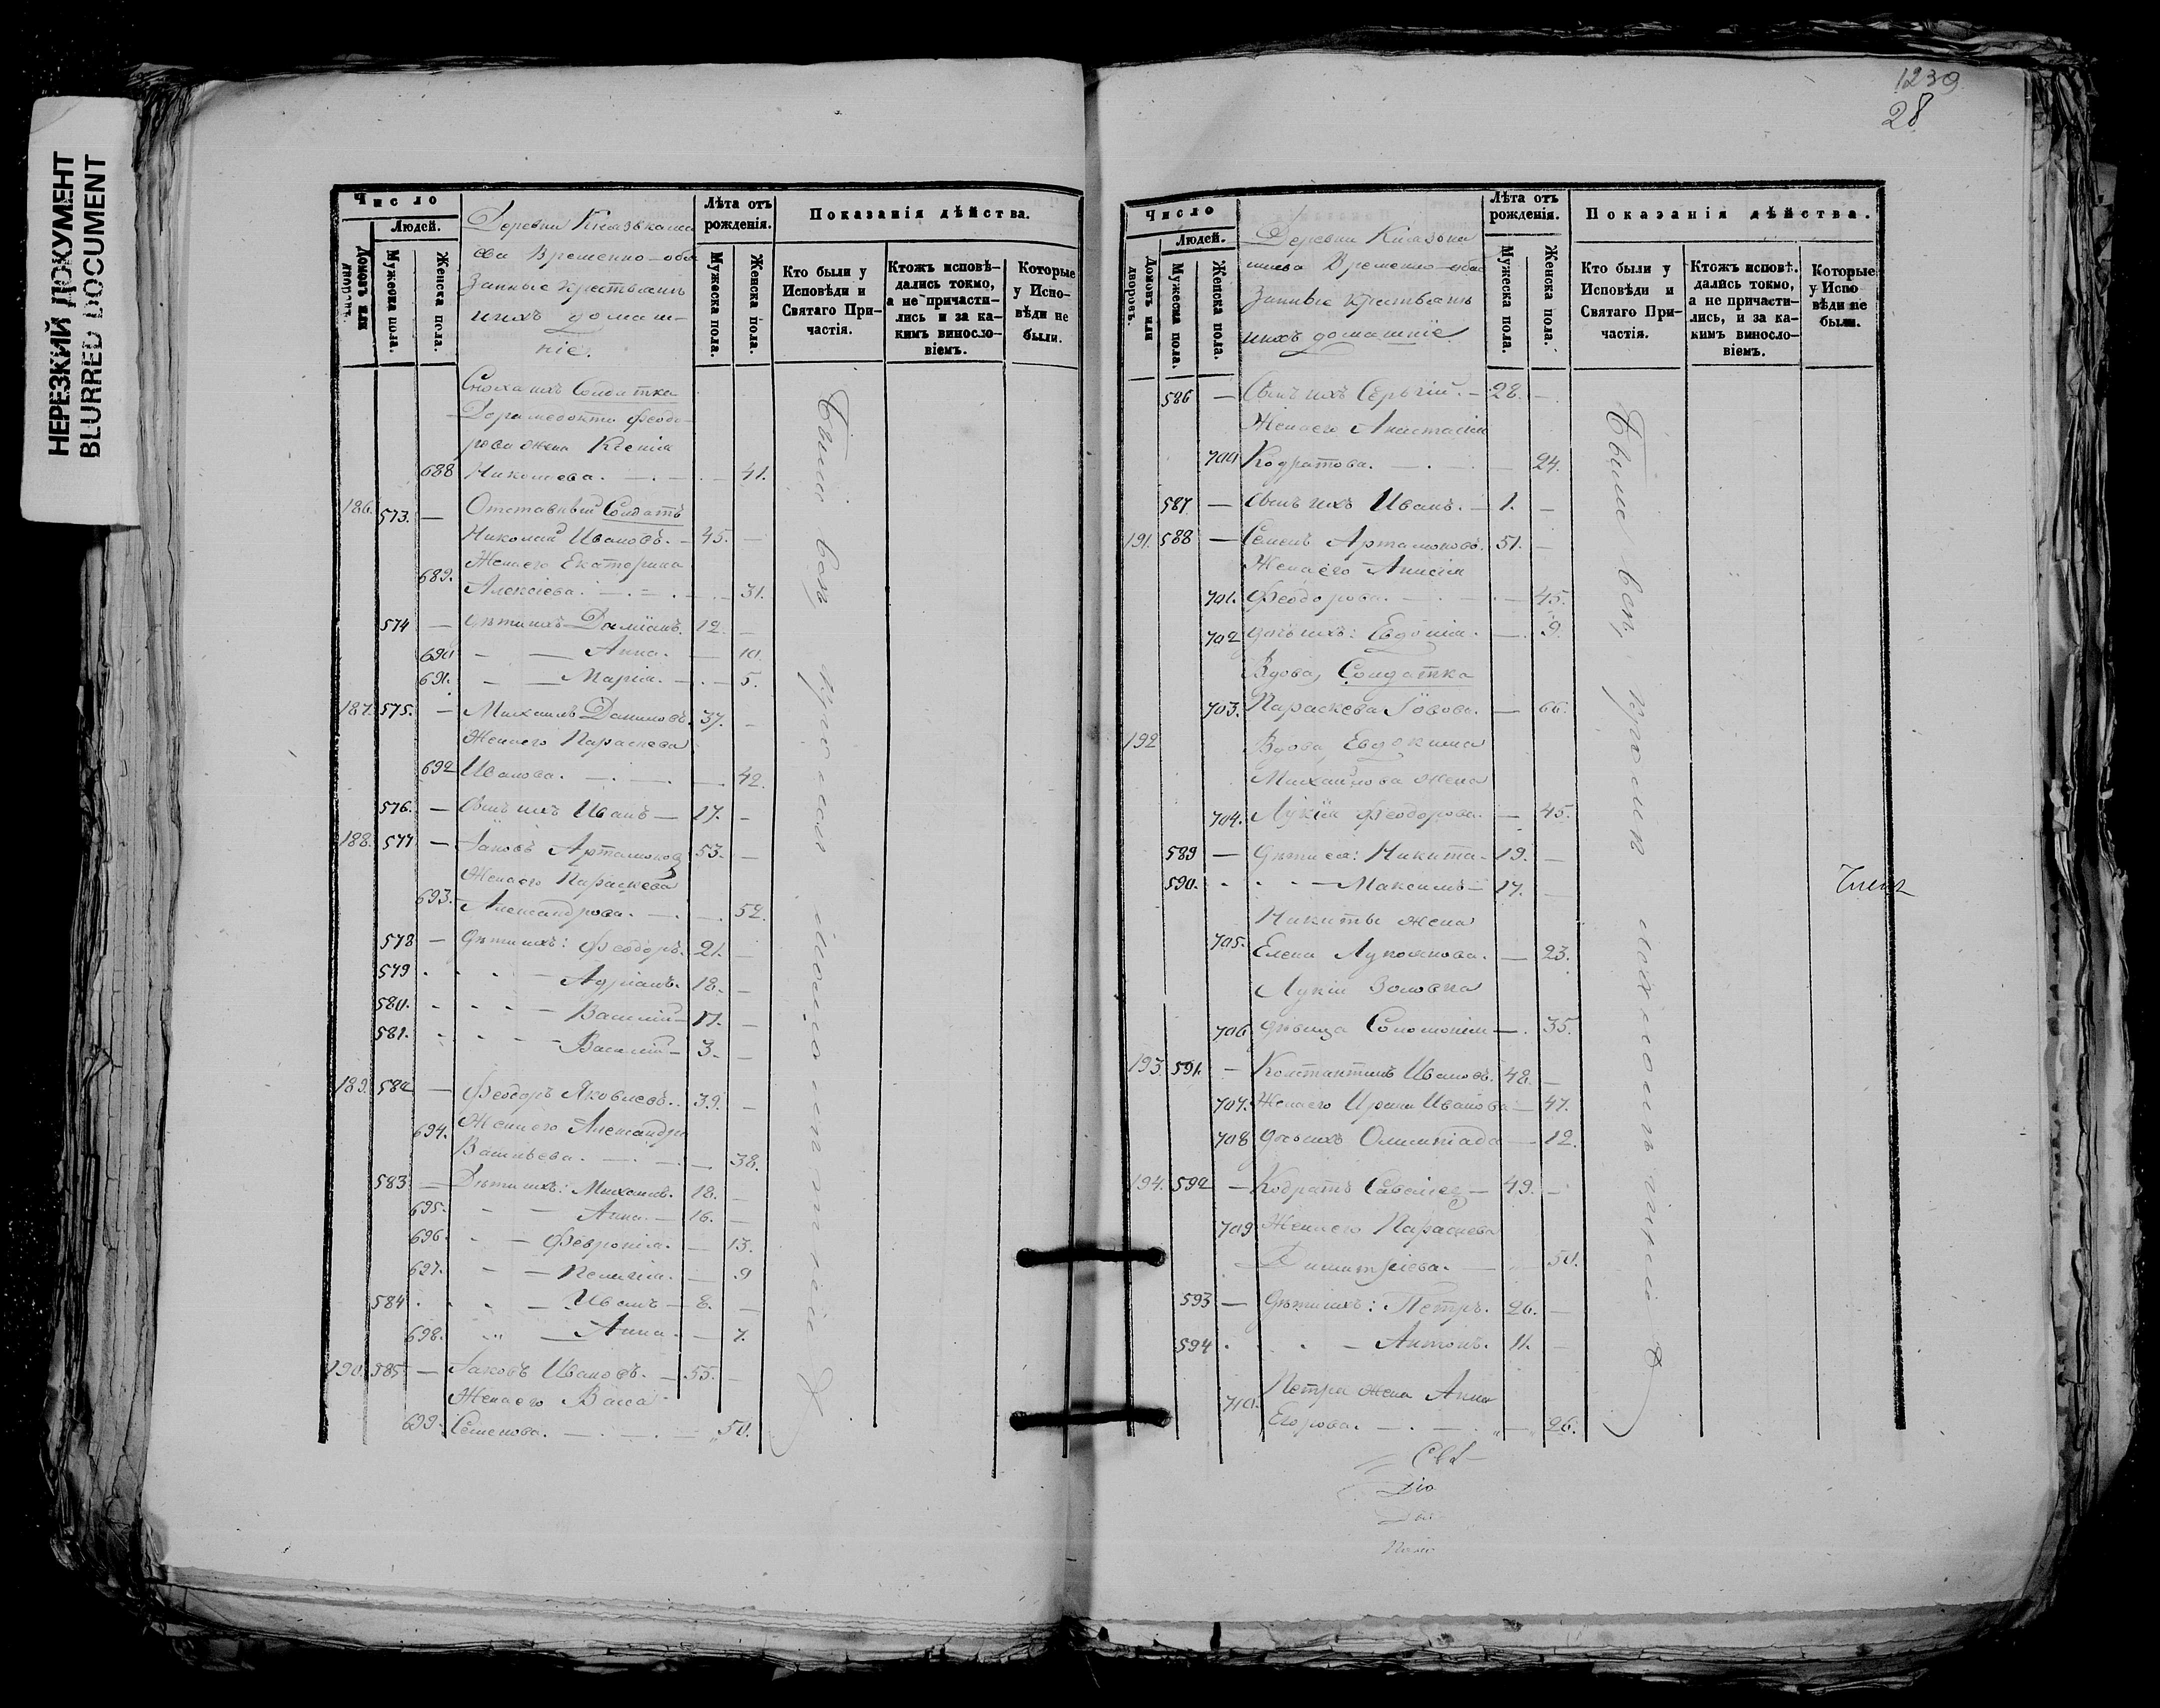 НЕРЕЗКИЙ ДОКУМЕНТ
BLURRED DOCUMENT
Число
Людей.
Домовъ или дворовъ.
Мужеска пола.
Женска пола.
Временно-обя
занные крестьяне
ихъ домаш-
ніе.
Лѣта отъ рожденія.
Мужеска пола.
Женска пола.
Показанія дѣйства.
Кто были у Исповѣди и Святаго При-частія.
Ктожъ исповѣ-дались токмо, а не причасти-лись и за ка-кимъ винословіемъ.
Которые у Испо-вѣди не были.
Сноха ихъ Солдатка
жена Ксенія
688 Николаева. 41.
186. 573. — Отставный Солдатъ
Николай Ивановъ. 45. —
Жена его Екатерина
689. Алексіева. 31.
574 — Дѣти ихъ Даміанъ. 12. —
690 Анна. 10.
691. Марія. 5.
187. 575. — Михаилъ Даниловъ. 37. —
Жена его Параскева
692 Иванова. 42.
576. — Сынъ ихъ Иванъ — 17. —
188. 577 — Іаковъ Артамоновъ 53. —
Жена его Параскева
693. Александрова. 52.
578 — Дѣти ихъ: Ѳеодоръ. 21. —
579 Адріанъ. 18. —
580. Василій — 17. —
581. Василій — 3. —
189. 582 — Ѳеодоръ Яковлевъ. 39. —
694. Жена его Александра
Васильева. 38.
583 — Дѣти ихъ: Михаилъ. 18. —
695. Анна. — 16. —
696. Ѳевронія. — 13.
697. Пелагія. — 9
584 Иванъ — 8. —
698. Анна. — 7.
190. 585 — Іаковъ Ивановъ. — 55. —
Жена его Васса
699. Семенова. 50.
Были вси, кромѣ
1239
28
Число
Людей.
Домовъ или дворовъ.
Мужеска пола.
Женска пола.
Временно-обя
занные крестьяне
ихъ домашніе
Лѣта отъ рожденія.
Мужеска пола.
Женска пола.
Показанія дѣйства.
Кто были у Исповѣди и Святаго При-частія.
Ктожъ исповѣ-дались токмо, а не причасти-лись, и за ка-кимъ винословіемъ.
Которые у Испо-вѣди не были.
586 — Сынъ ихъ Сергій. — 28. —
Жена его Анастасія
700 Кодратова. 24.
587 — Сынъ ихъ Иванъ. — 1. —
191. 588 — Семенъ Артамоновъ. 51. —
Жена его Анисія
701. Ѳеодорова. 45.
702 Дочь ихъ: 9.
Вдова, Солдатка
703. Параскева Іовова. — 66.
192 Вдова, Евдокима
Михайлова жена
704. Лукія Ѳеодорова. — 45.
589 — Дѣти ея: Никита — 19. —
590. Максимъ — 17. —
Никиты жена
705. Елена — 23.
Лукіи золовка
706. дѣвица Соломонія — 35.
193. 591. — Константинъ Ивановъ. 48. —
707. Жена его Ирина Иванова — 47.
708 Дочь ихъ Олимпіада — 12.
194. 592 — Кодратъ 49. —
709 Жена его Параскева
Димитріева. 50.
593 — Дѣти ихъ: Петръ. 26. —
594 Антонъ. 11. —
710. Петра жена Анна
Егорова. 26.
Были вси, кромѣ